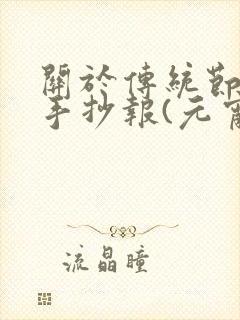 關於傳統節
手抄報(元宵
流晶瞳